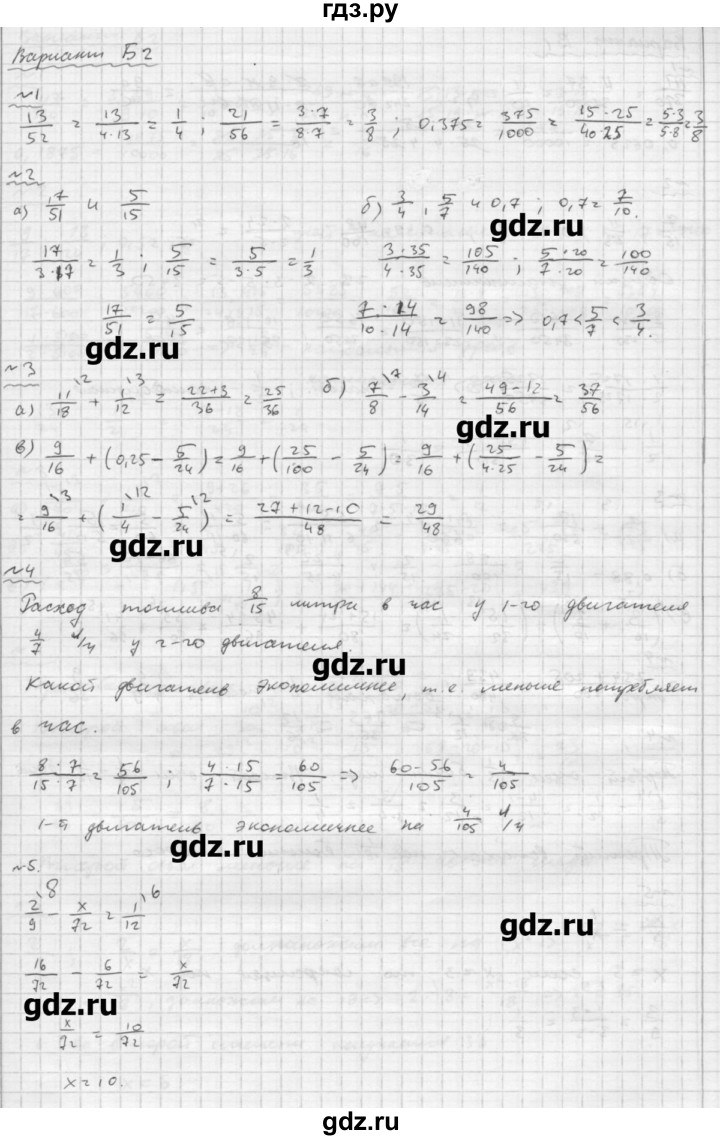 гдз.ру
Вариант Б2
№1
13/52 = 13/(4·13) = 1/4 ; 21/56 = (3·7)/(8·7) = 3/8 ; 0,375 = 375/1000 = (15·25)/(40·25) = (5·3)/(5·8) = 3/8
№2
а) 17/51 и 5/15
б) 3/4 , 5/7 и 0,7 ; 0,7 = 7/10.
gdz.ru
17/(3·17) = 1/3 ; 5/15 = 5/(3·5) = 1/3
(3·35)/(4·35) = 105/140 ; (5·20)/(7·20) = 100/140
17/51 = 5/15
(7·14)/(10·14) = 98/140 => 0,7 < 5/7 < 3/4.
gdz.ru
№3
а) 11/18 \2 + 1/12 \3 = (22+3)/36 = 25/36
б) 7/8 \7 - 3/14 \4 = (49-12)/56 = 37/56
gdz.ru
в) 9/16 + (0,25 - 5/24) = 9/16 + (25/100 - 5/24) = 9/16 + (25/(4·25) - 5/24) =
= 9/16 \3 + (1/4 \12 - 5/24 \2) = (27+12-10)/48 = 29/48
gdz.ru
№4
Расход топлива 8/15 литра в час у 1-го двигателя
4/7 л/ч у 2-го двигателя.
gdz.ru
Какой двигатель экономичнее, т.е. меньше потребляет
в час.
(8·7)/(15·7) = 56/105 ; (4·15)/(7·15) = 60/105 => (60-56)/105 = 4/105
1-й двигатель экономичнее на 4/105 л/ч
gdz.ru
№5.
2/9 \8 - x/72 = 1/12 \6
gdz.ru
16/72 - 6/72 = x/72
gdz.ru
x/72 = 10/72
x = 10.
gdz.ru